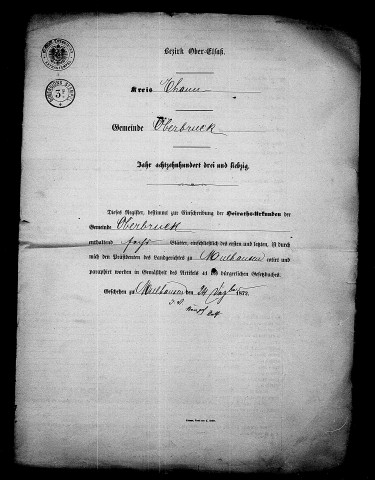 Bezirk Ober-Elsaß.
Kreis Thann
Gemeinde Oberbruck
Jahr achtzehnhundert drei und siebzig.
Dieses Register, bestimmt zur Einschreibung der Heiraths-Urkunden der
Gemeinde Oberbruck
enthaltend sechs Blätter, einschließlich des ersten und letzten, ist durch
mich den Präsidenten des Landgerichtes zu Mülhausen cotirt und
paraphirt worden in Gemäßheit des Artikels 41 des bürgerlichen Gesetzbuches.
Geschehen zu Mülhausen den 24 1872.